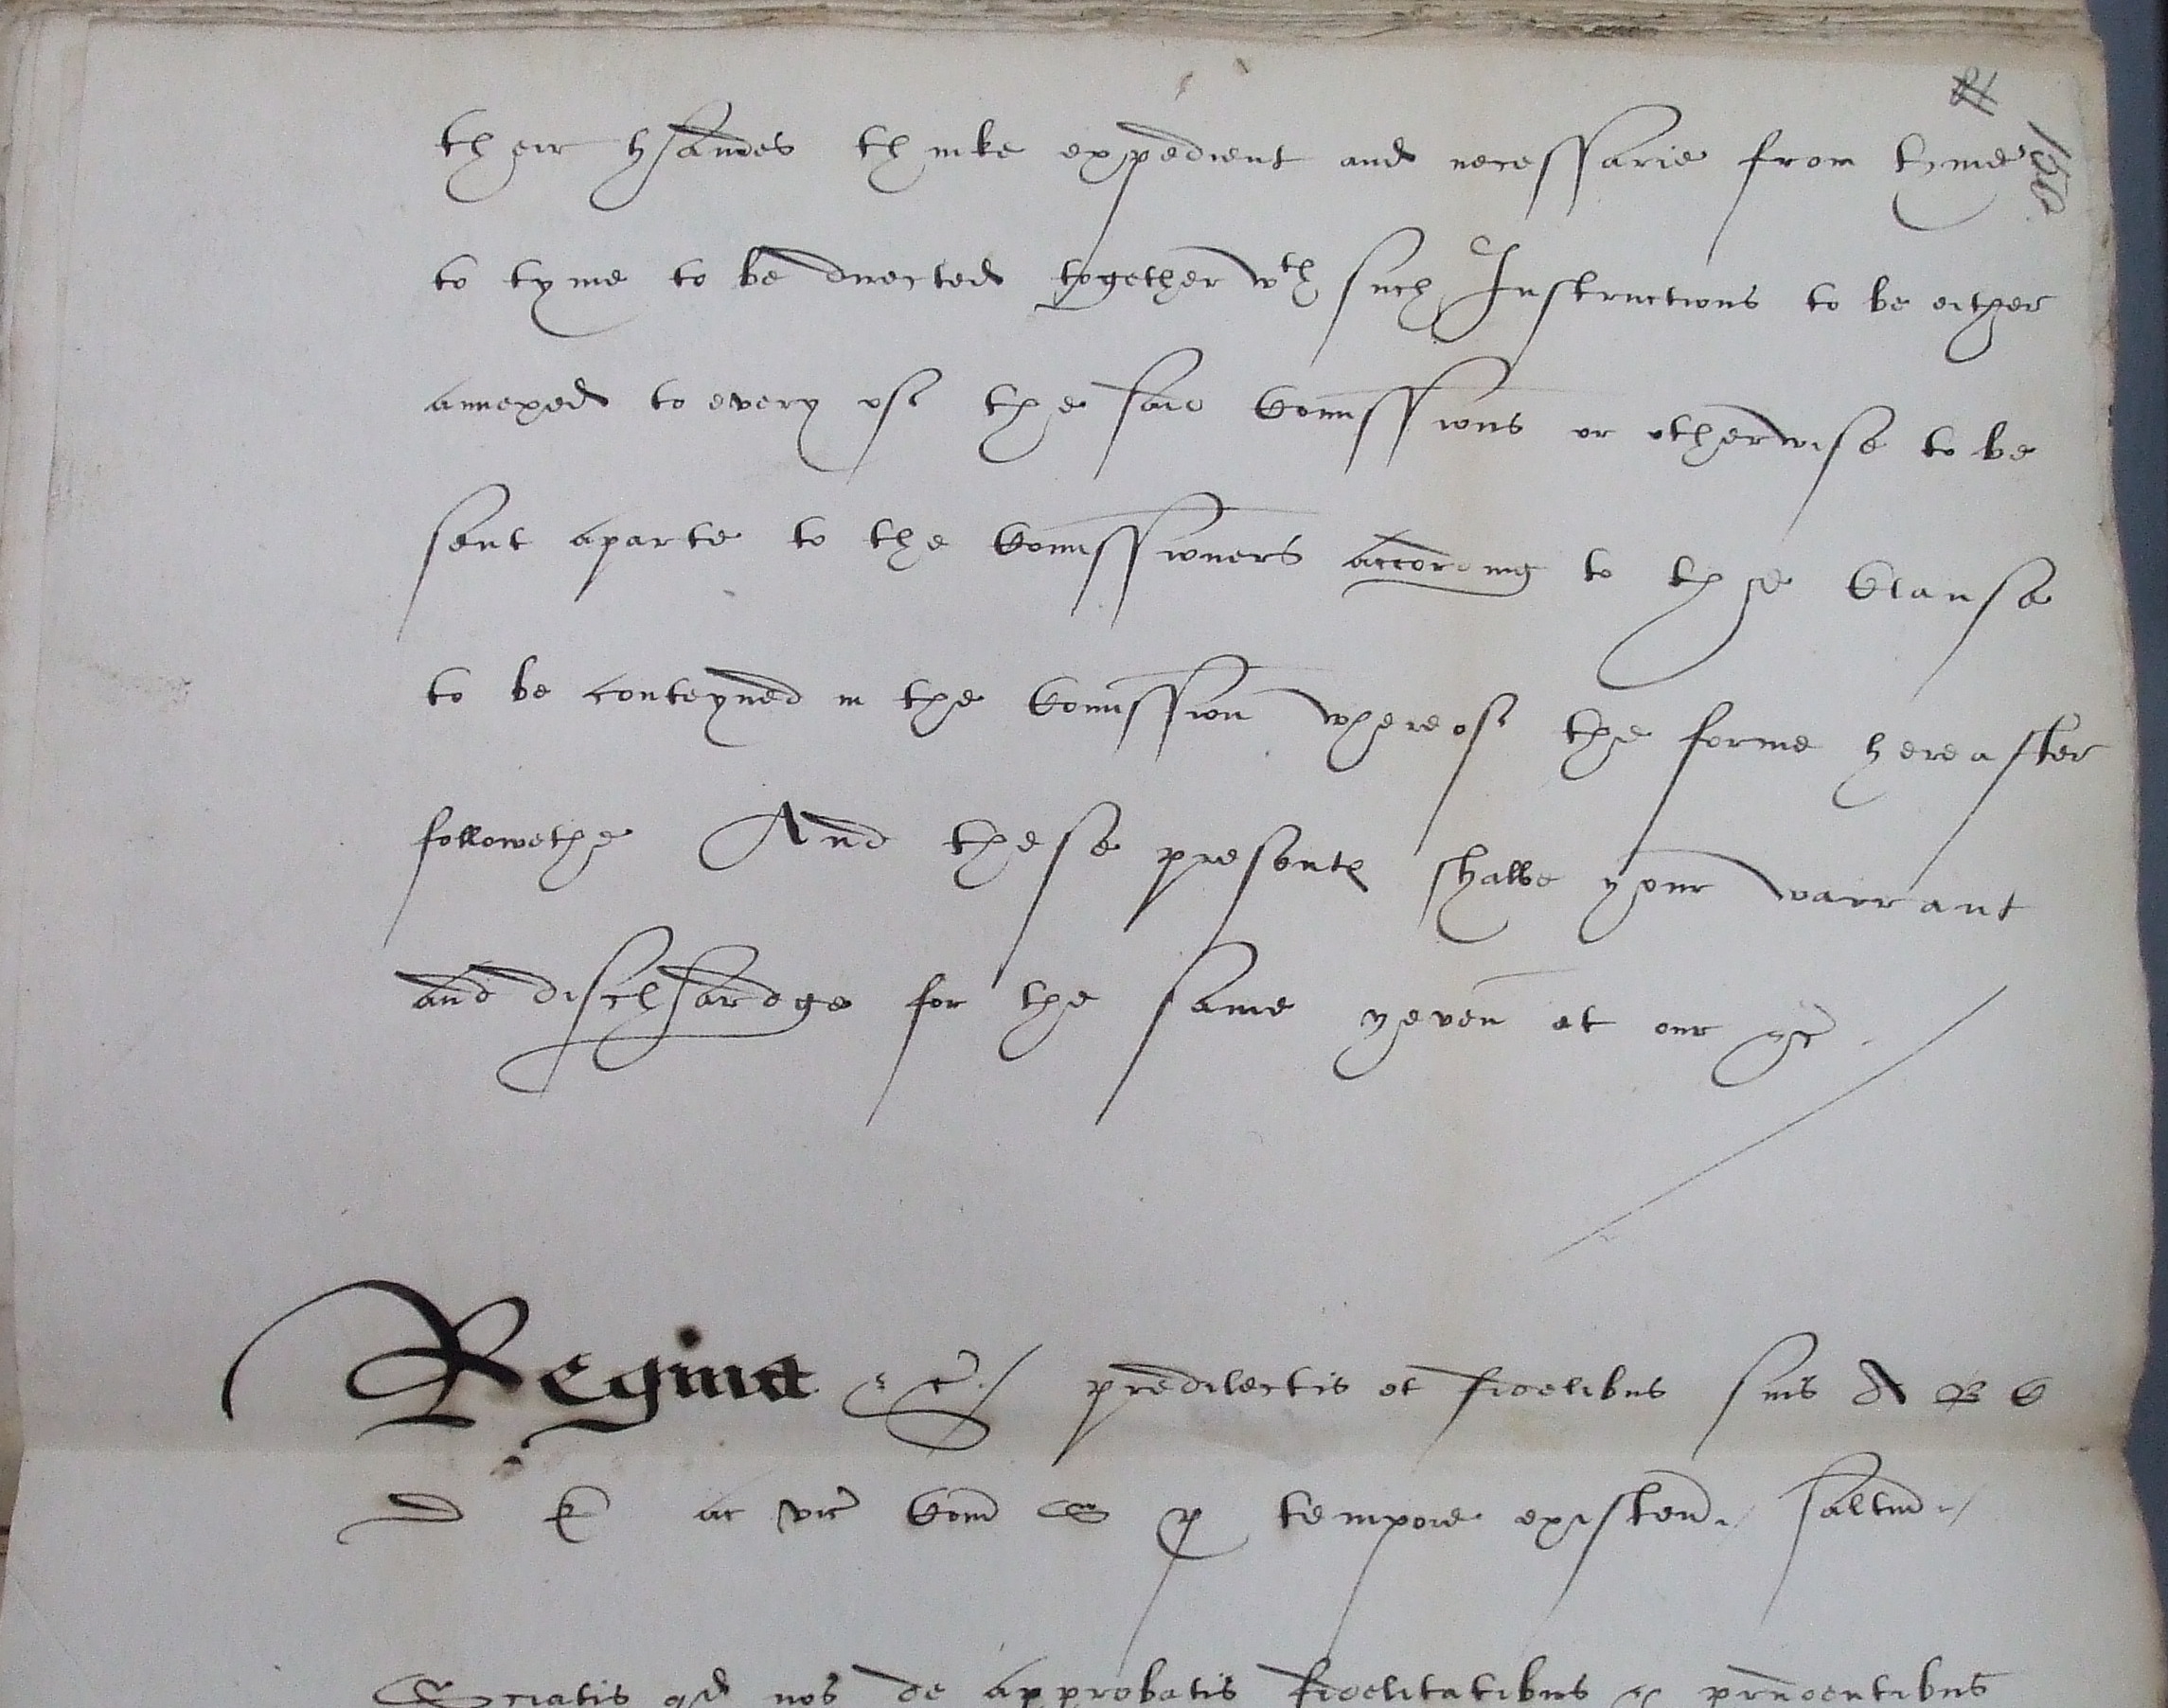 their handes thinke expedient and necessarie from tyme
to tyme to be directed together wth such Instructions to be either
annexed to every of the said Comissions or otherwise to be
sent aparte to the Comissioners according to the Clause
to be conteyned in the Comission whereof the forme hereafter
followethe And these presentes shalbe your warrant
and dischardge for the same yeven at our &c
Regina &c / predilectis et fidelibus suis A B C
D E ac vic Com S p tempore existen saltm
Sciatis qd nos de approbatis fidelitatibus & prudentibus